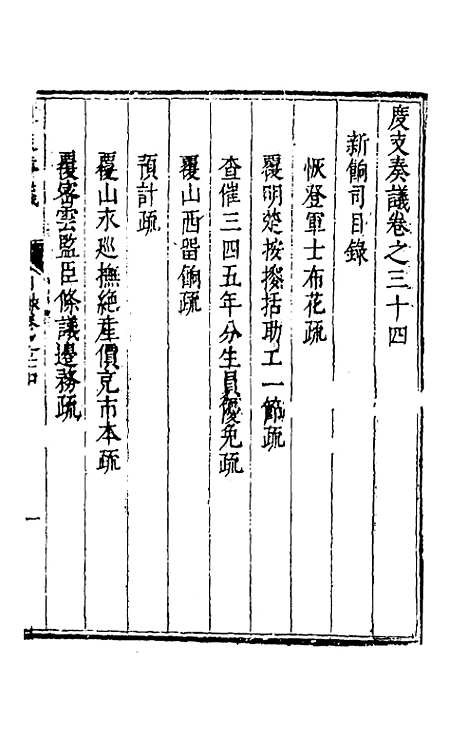 度支奏議卷之三十四
新餉司目錄
恢登軍士布花疏
覆明楚按搜括助工一節疏
查催三四五年分生員優免疏
覆山西留餉疏
預計疏
覆山永巡撫絶產價充市本疏
覆密雲監臣條議邊務疏
一